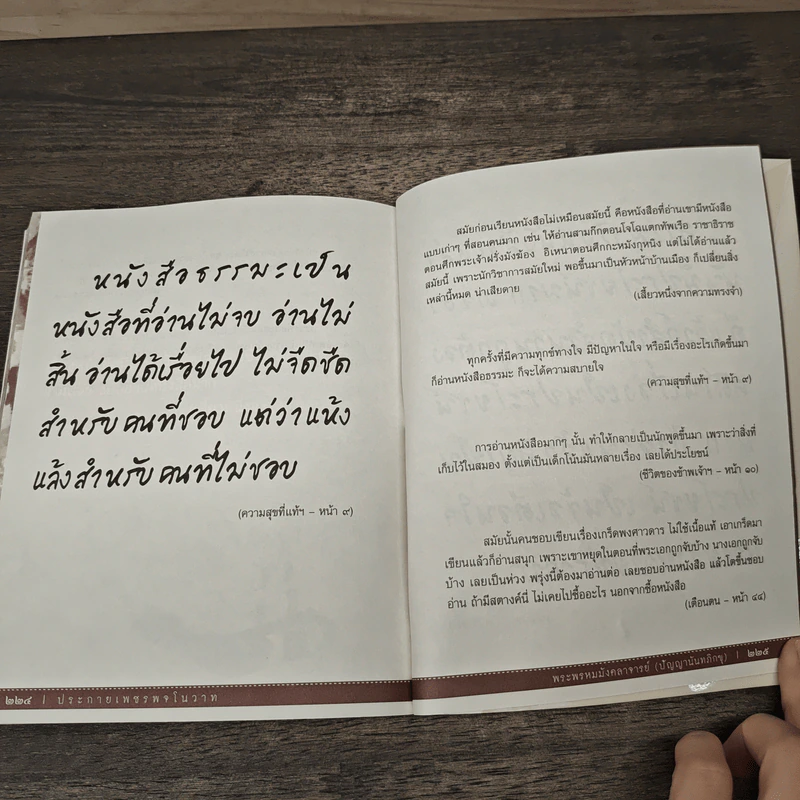 หนังสือธรรมะเป็น
หนังสือที่อ่านไม่จบ อ่านไม่
สิ้น อ่านได้เรื่อยไป ไม่จืดชืด
สำหรับคนที่ชอบ แต่ว่าแห้ง
แล้งสำหรับคนที่ไม่ชอบ
(ความสุขที่แท้ฯ – หน้า ๙)
๒๒๔ | ประกายเพชรพจโนวาท
สมัยก่อนเรียนหนังสือไม่เหมือนสมัยนี้ คือหนังสือที่อ่านเขามีหนังสือ
แบบเก่าๆ ที่สอนคนมาก เช่น ให้อ่านสามก๊กตอนโจโฉแตกทัพเรือ ราชาธิราช
ตอนศึกพระเจ้าฝรั่งมังฆ้อง อิเหนาตอนศึกกะหมังกุหนิง แต่ไม่ได้อ่านแล้ว
สมัยนี้ เพราะนักวิชาการสมัยใหม่ พอขึ้นมาเป็นหัวหน้าบ้านเมือง ก็เปลี่ยนสิ่ง
เหล่านี้หมด น่าเสียดาย
(เสี้ยวหนึ่งจากความทรงจำ)
ทุกครั้งที่มีความทุกข์ทางใจ มีปัญหาในใจ หรือมีเรื่องอะไรเกิดขึ้นมา
ก็อ่านหนังสือธรรมะ ก็จะได้ความสบายใจ
(ความสุขที่แท้ฯ – หน้า ๙)
การอ่านหนังสือมากๆ นั้น ทำให้กลายเป็นนักพูดขึ้นมา เพราะว่าสิ่งที่
เก็บไว้ในสมอง ตั้งแต่เป็นเด็กโน้นมันหลายเรื่อง เลยได้ประโยชน์
(ชีวิตของข้าพเจ้าฯ – หน้า ๑๐)
สมัยนั้นคนชอบเขียนเรื่องเกร็ดพงศาวดาร ไม่ใช้เนื้อแท้ เอาเกร็ดมา
เขียนแล้วก็อ่านสนุก เพราะเขาหยุดในตอนที่พระเอกถูกจับบ้าง นางเอกถูกจับ
บ้าง เลยเป็นห่วง พรุ่งนี้ต้องมาอ่านต่อ เลยชอบอ่านหนังสือ แล้วโตขึ้นชอบ
อ่าน ถ้ามีสตางค์นี่ ไม่เคยไปซื้ออะไร นอกจากซื้อหนังสือ
(เตือนตน – หน้า ๔๔)
พระพรหมมังคลาจารย์ (ปัญญานันทภิกขุ) | ๒๒๕